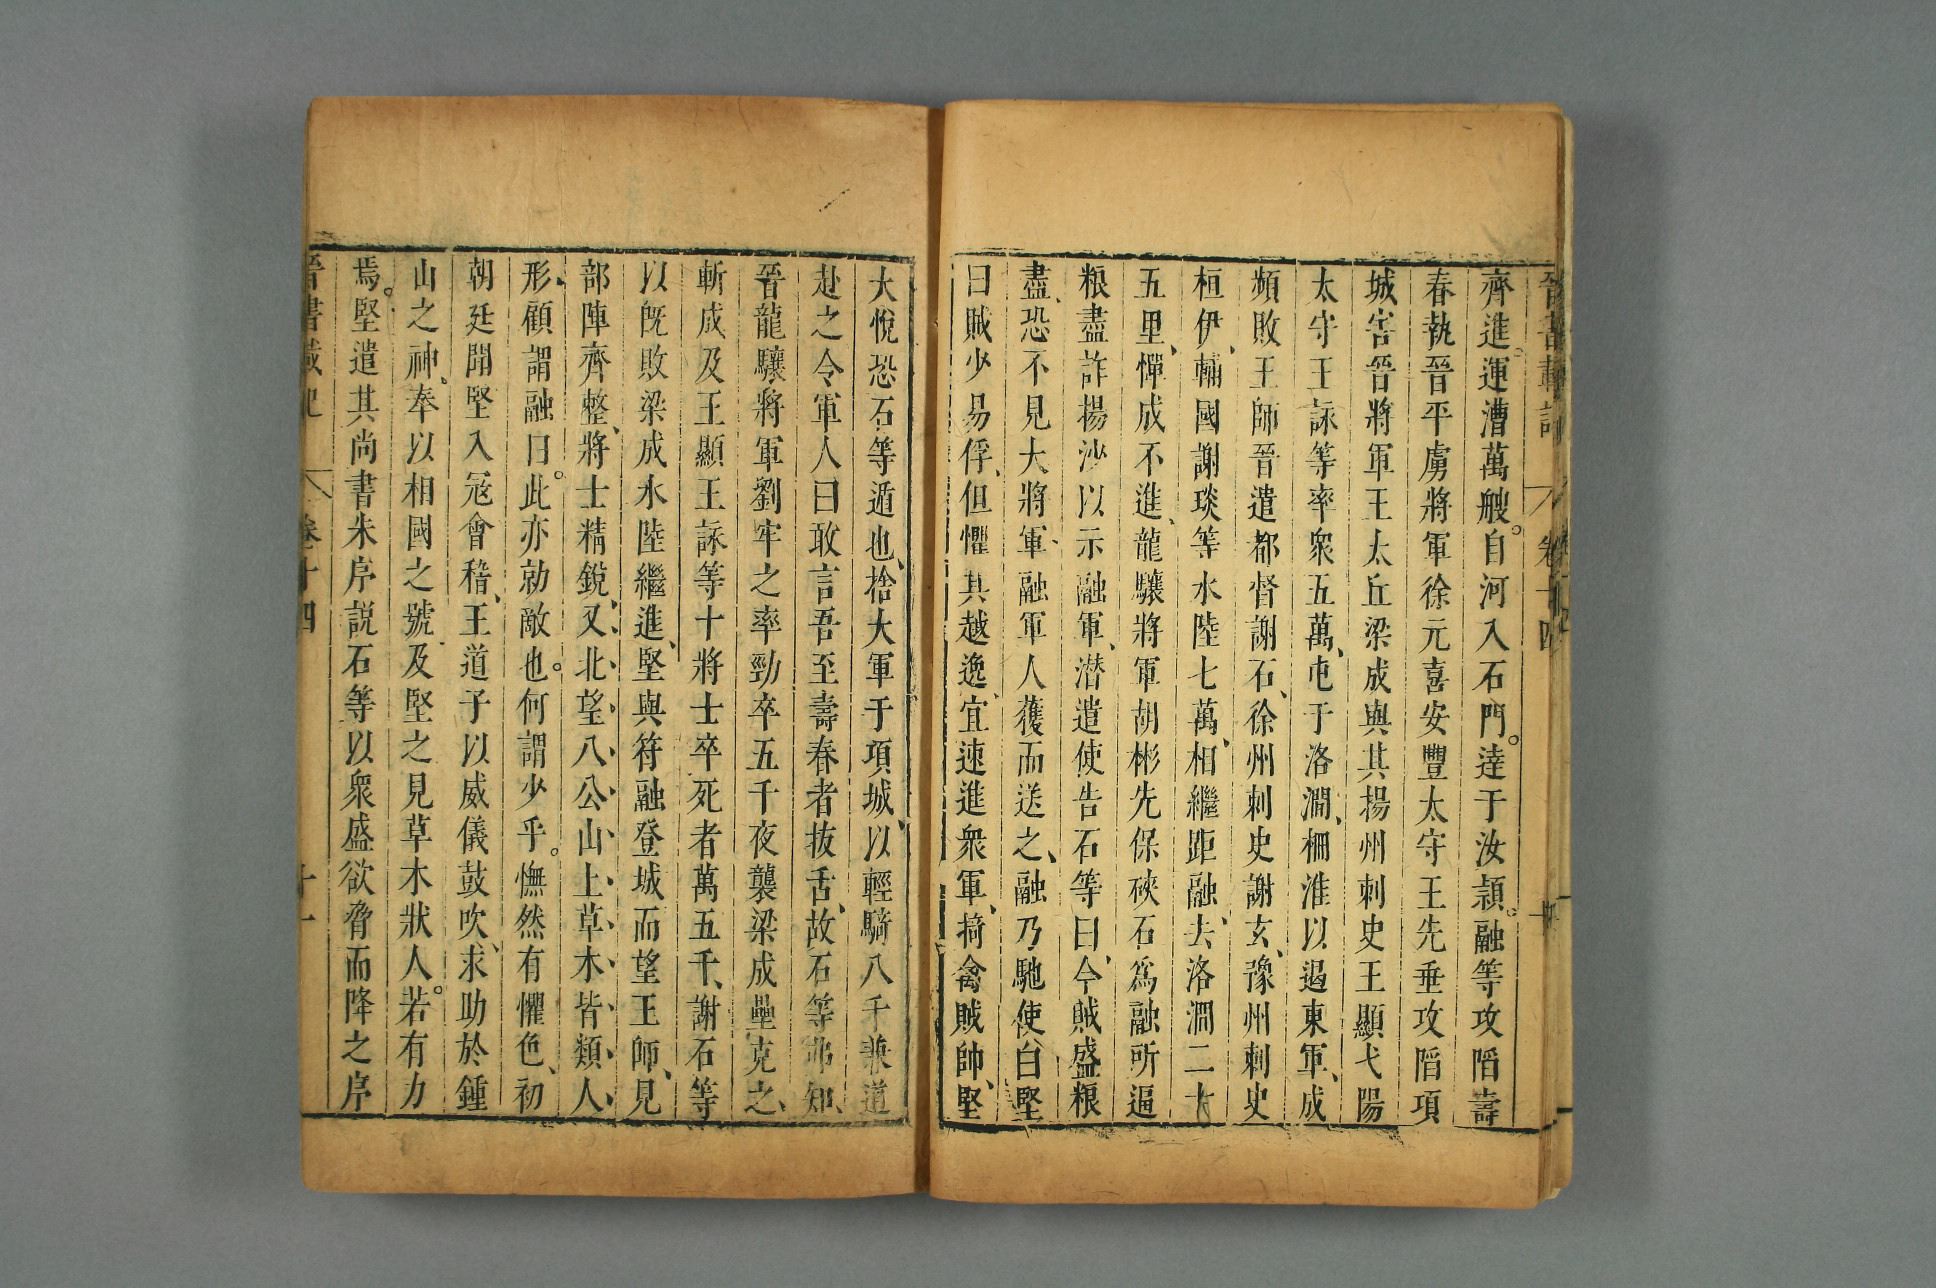 晉書載記 卷十四
齊進。運漕萬艘。自河入石門。達于汝潁。融等攻陷壽
春執晉平虜將軍徐元喜安豐太守王先垂攻陷項
城害晉將軍王太丘梁成與其揚州刺史王顯弋陽
太守王詠等率衆五萬、屯于洛澗、柵淮以遏東軍、成
頻敗王師晉遣都督謝石、徐州刺史謝玄、豫州刺史
桓伊、輔國謝琰等水陸七萬、相繼距融、去洛澗二十
五里、憚成不進、龍驤將軍胡彬先保硤石爲融所逼
粮盡詐揚沙以示融軍、潜遣使告石等曰、今賊盛粮
盡、恐不見大將軍、融軍人獲而送之、融乃馳使白堅
曰賊少易俘、但懼其越逸、宜速進衆軍、掎禽賊帥、堅
大悅恐石等遁也、捨大軍于項城、以輕騎八千兼道
赴之令軍人曰敢言吾至壽春者抜舌、故石等弗知、
晉龍驤將軍劉牢之率勁卒五千夜襲梁成壘克之、
斬成及王顯王詠等十將士卒死者萬五千、謝石等
以旣敗梁成水陸繼進、堅與苻融登城而望王師、見
部陣齊整、將士精銳、又北望八公山上草木皆類人
形、顧謂融曰。此亦勍敵也。何謂少乎。憮然有懼色、初
朝廷聞堅入冦會稽、王道子以威儀鼓吹、求助於鍾
山之神、奉以相國之號、及堅之見草木狀人。若有力
焉。堅遣其尚書朱序説石等以衆盛欲脅而降之序
晉書載記 卷十四 十一